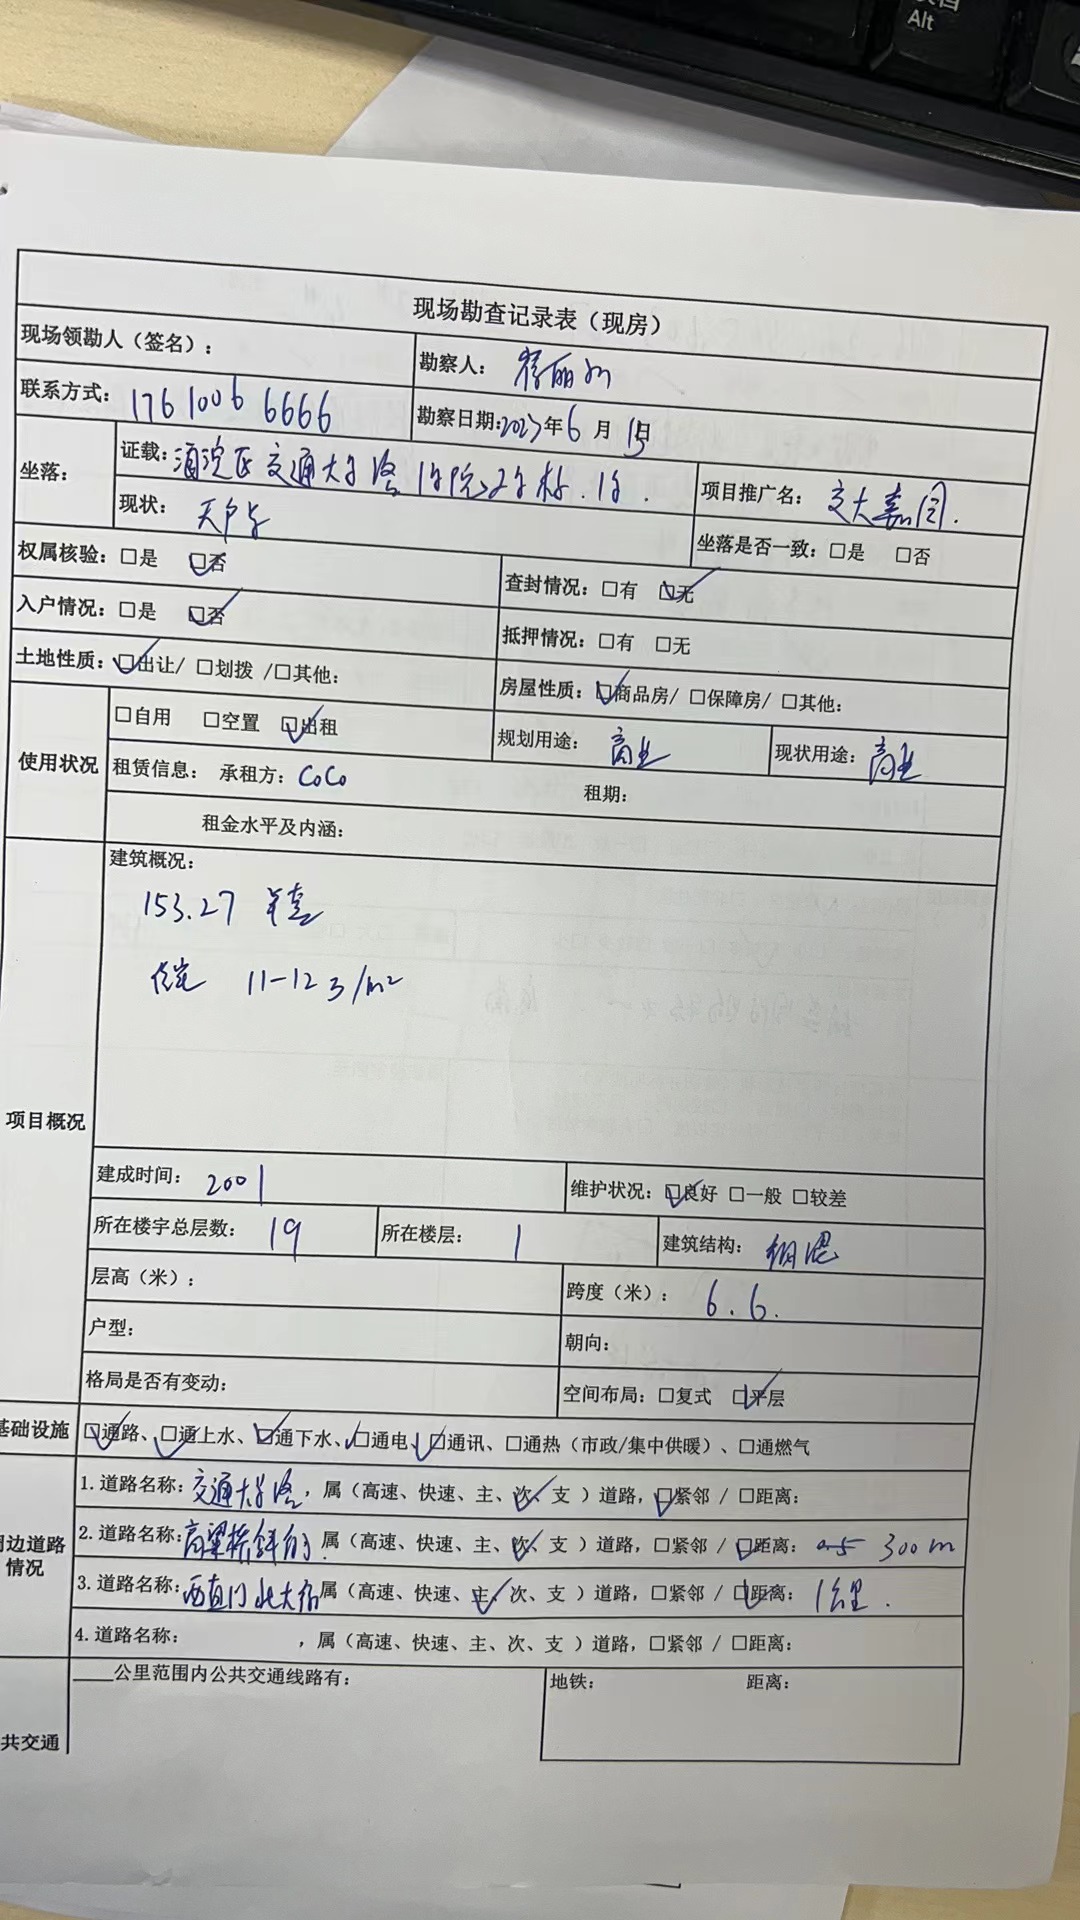 Alt
现场勘查记录表（现房）
现场领勘人（签名）：
勘察人：
联系方式：176 1006 6666
勘察日期：2023年6月15日
坐落：
证载：海淀区交通大学路1号院2号楼.1号.
项目推广名：交大嘉园.
现状：无户号
坐落是否一致：□是 □否
权属核验：□是 ☑否
查封情况：□有 ☑无
入户情况：□是 ☑否
抵押情况：□有 □无
土地性质：☑出让/ □划拨 /□其他：
房屋性质：☑商品房/ □保障房/ □其他：
使用状况
□自用 □空置 ☑出租
规划用途：商业
现状用途：商业
租赁信息： 承租方：CoCo 租期：
租金水平及内涵：
项目概况
建筑概况：
153.27
住宅 11-12 /m²
建成时间：2001
维护状况：☑良好 □一般 □较差
所在楼宇总层数：19
所在楼层：1
建筑结构：钢混
层高（米）：
跨度（米）：6.6.
户型：
朝向：
格局是否有变动：
空间布局：□复式 ☑平层
基础设施
☑通路、☑通上水、☑通下水、☑通电、☑通讯、□通热（市政/集中供暖）、□通燃气
边道路
情况
1.道路名称：交通大学路，属（高速、快速、主、次✓、支 ）道路，☑紧邻 / □距离：
2.道路名称：高梁桥斜街.属（高速、快速、主、次✓、支 ）道路，□紧邻 / ☑距离：300m
3.道路名称：西直门北大街属（高速、快速、主✓、次、支 ）道路，□紧邻 / ☑距离：1公里.
4.道路名称： ，属（高速、快速、主、次、支 ）道路，□紧邻 / □距离：
共交通
____公里范围内公共交通线路有：
地铁： 距离：